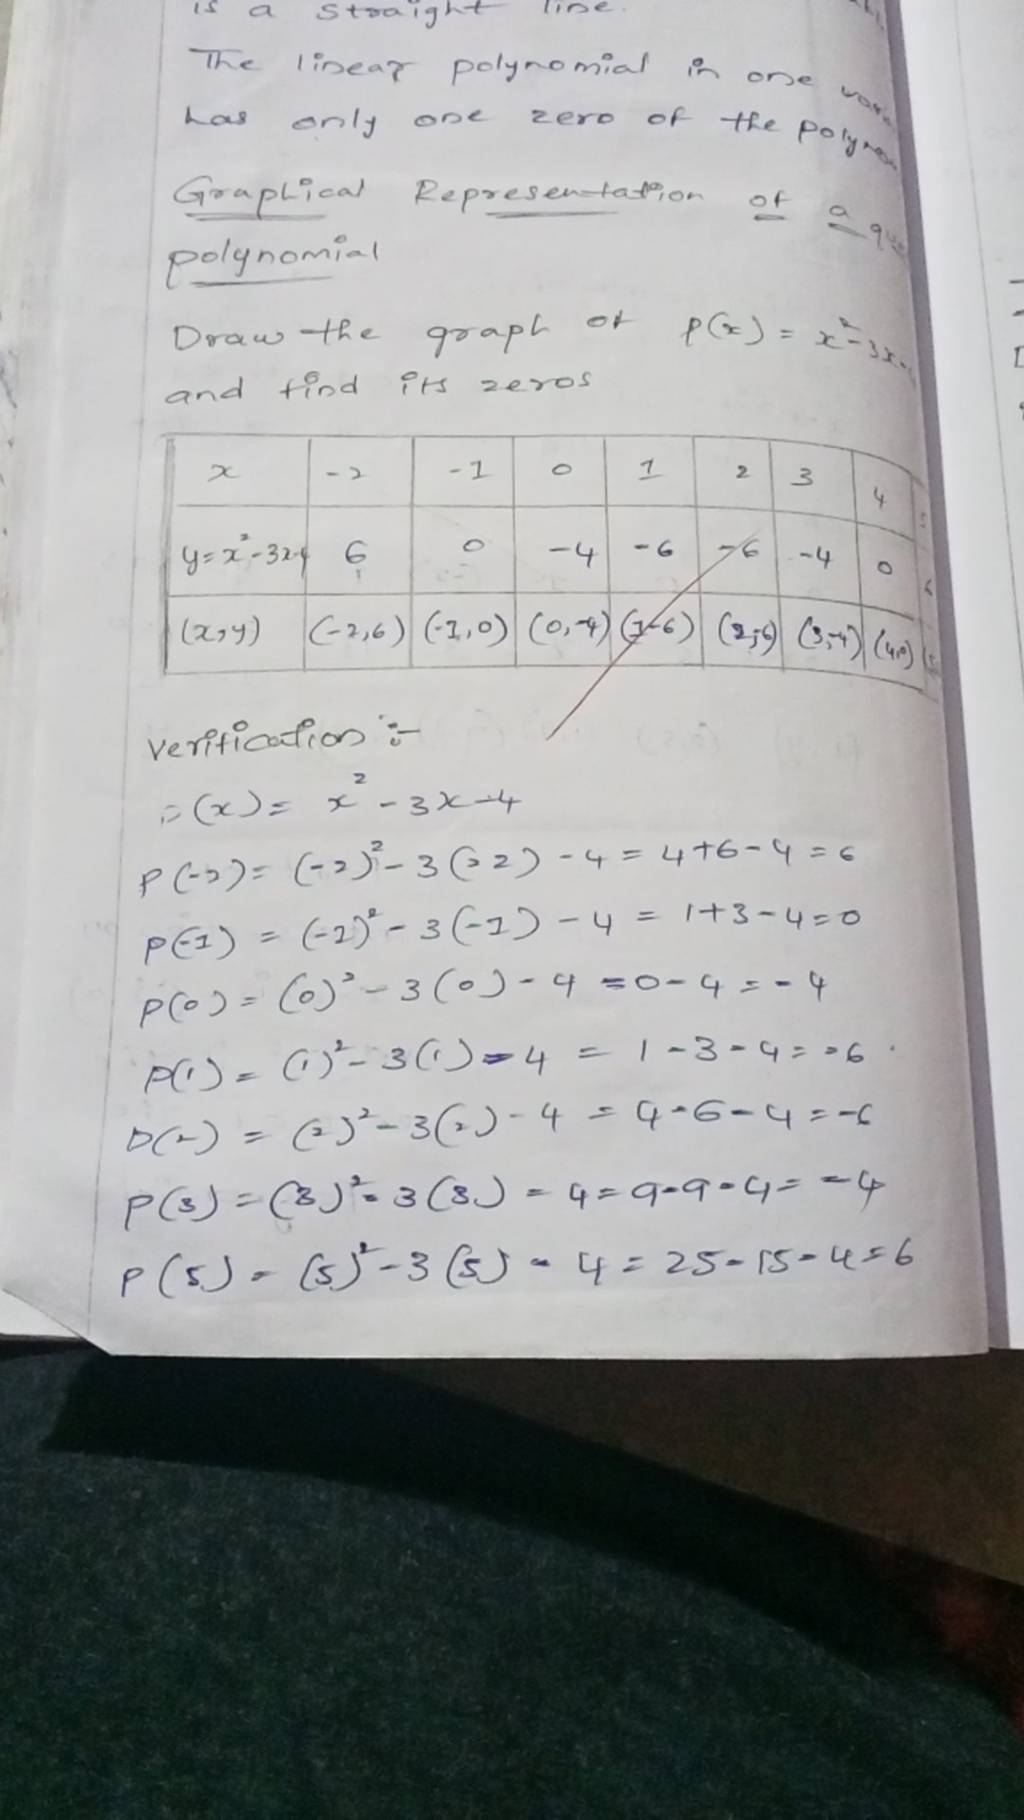 is a straight line.
The linear polynomial in one
has only one zero of the
Graphical Representation of a
polynomial
Draw the graph of p(x) = x²-3x-
and find its zeros
x -2 -1 0 1 2 3 4 5
y=x²-3x-4 6 0 -4 -6 -6 -4 0 6
(x,y) (-2,6) (-1,0) (0,-4) (1-6) (2,-6) (3,-4) (4,0)
Verification :-
(x) = x²-3x-4
P(-2) = (-2)²-3(-2)-4 = 4+6-4 = 6
P(-1) = (-1)²-3(-1)-4 = 1+3-4=0
P(0) = (0)²-3(0)-4 =0-4 = -4
P(1) = (1)²-3(1)-4 = 1-3-4=-6
P(2) = (2)²-3(2)-4 = 4-6-4=-6
P(3) = (3)²-3(3)-4=9-9-4=-4
P(5) = (5)²-3(5)-4=25-15-4=6